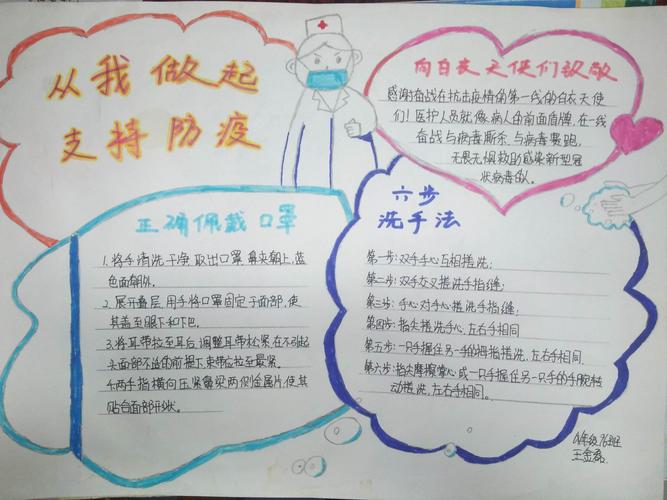 从我做起
支持防疫
向白衣天使们致敬
感谢奋战在抗击疫情的第一线的白衣天使
们！医护人员就像病人的前面盾牌,在一线
奋战与病毒厮杀,与病毒赛跑,
无畏无惧救助感染新型冠
状病毒的人。
正确佩戴口罩
1.将手清洗干净,取出口罩,鼻夹朝上,蓝
色面朝外。
2.展开叠层,用手将口罩固定于面部,使
其盖至眼下和下巴。
3.将耳带拉至耳后,调整耳带松紧,在不引起
头面部不适的前提下,束带应拉至最紧。
4.两手指横向压紧鼻梁两侧金属片,使其
贴合面部形状。
六步
洗手法
第一步:双手手心互相搓洗;
第二步:双手交叉搓洗手指缝;
第三步:手心对手心搓洗手指缝;
第四步:指尖搓洗手心,左右手相同
第五步:一只手握住另一手的拇指搓洗,左右手相同
第六步:指尖摩擦掌心或一只手握住另一只手的手腕转
动搓洗,左右手相同。
八年级76班
王金磊